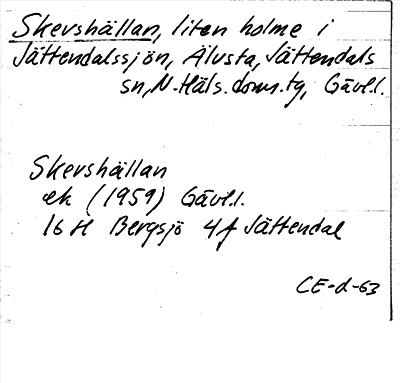 Skevshällan, liten holme i
Jättendalssjön, Älvsta, Jättendals
sn, N. Häls. doms.tg, Gävl.l.
Skevshällan
ek (1959) Gävl.l.
16 H Bergsjö 4f Jättendal
CE-d-63